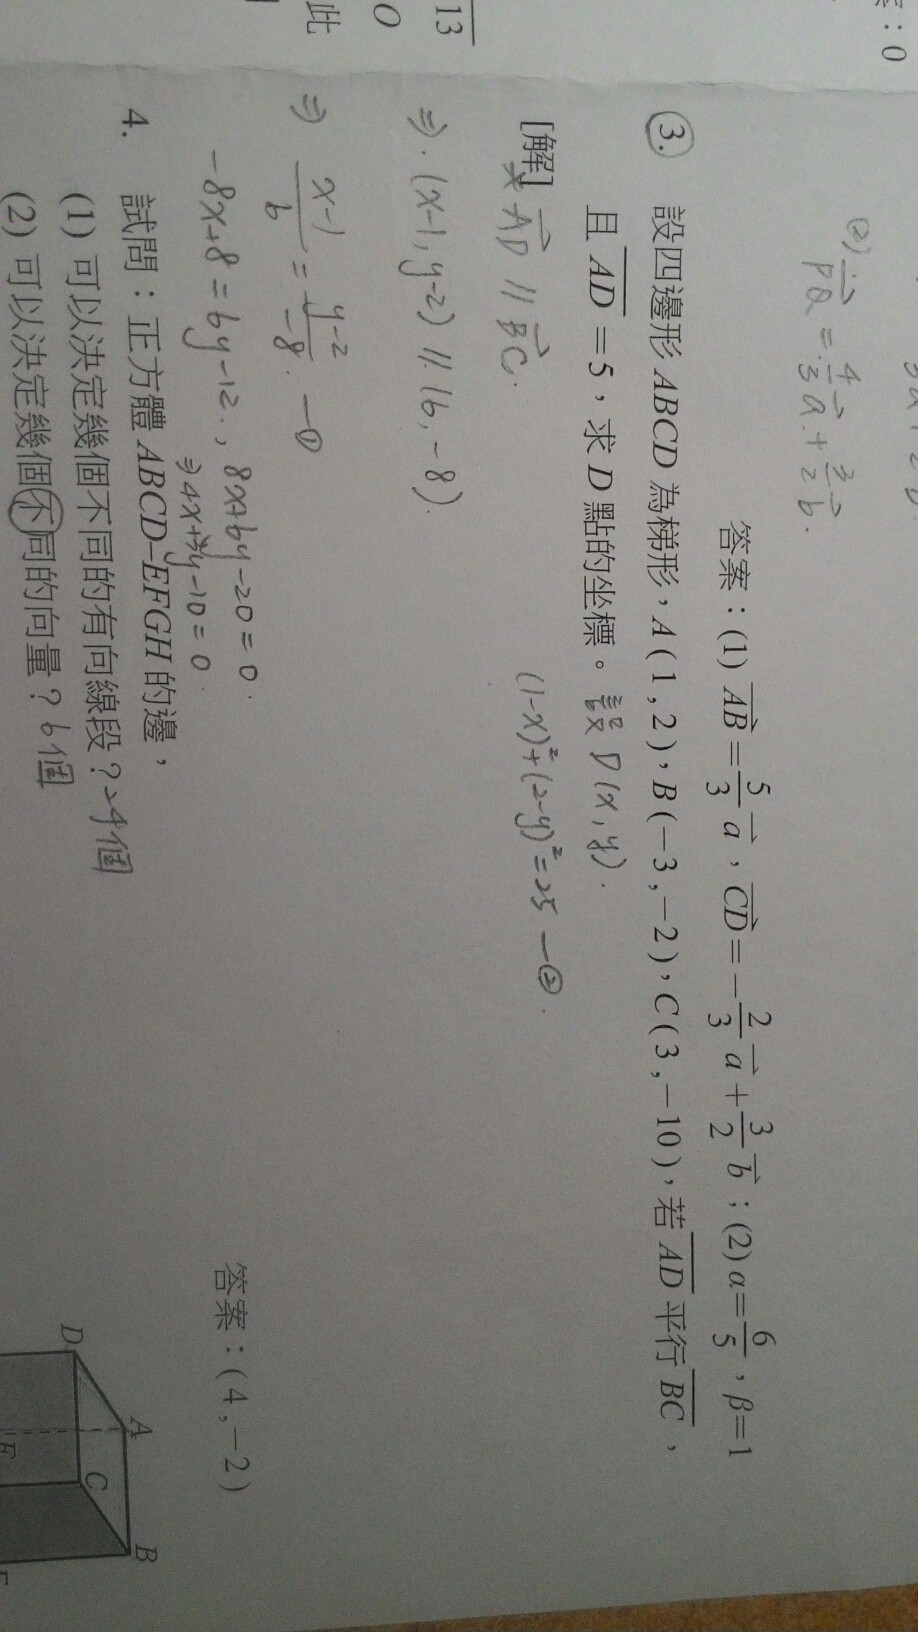 ：0
(2) PQ = 4/3 a + 3/2 b.
答案：(1) AB = 5/3 a，CD = －2/3 a + 3/2 b；(2) α = 6/5，β = 1
3. 設四邊形 ABCD 為梯形，A(1,2)，B(－3,－2)，C(3,－10)，若 AD 平行 BC，
且 AD = 5，求 D 點的坐標。設 D(x,y).
[解] AD // BC.
(1-x)²+(2-y)²=25 —②.
⇒ (x-1, y-2) // (6, -8).
⇒ x-1/6 = y-2/-8. —①
-8x+8=6y-12., 8x+6y-20=0.
⇒4x+3y-10=0.
答案：(4,－2)
4. 試問：正方體 ABCD－EFGH 的邊，
(1) 可以決定幾個不同的有向線段？24個
(2) 可以決定幾個不同的向量？6個
13
O
此
A
B
C
D